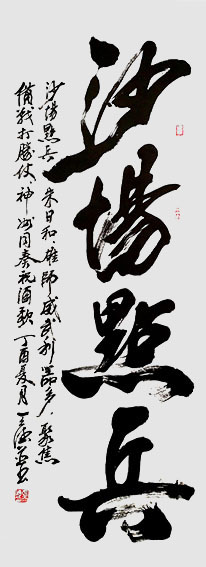 沙場點兵
沙場點兵 朱日和，雄師威武利器多，聚焦
備戰打勝仗，神州同奏祝酒歌 丁酉夏月